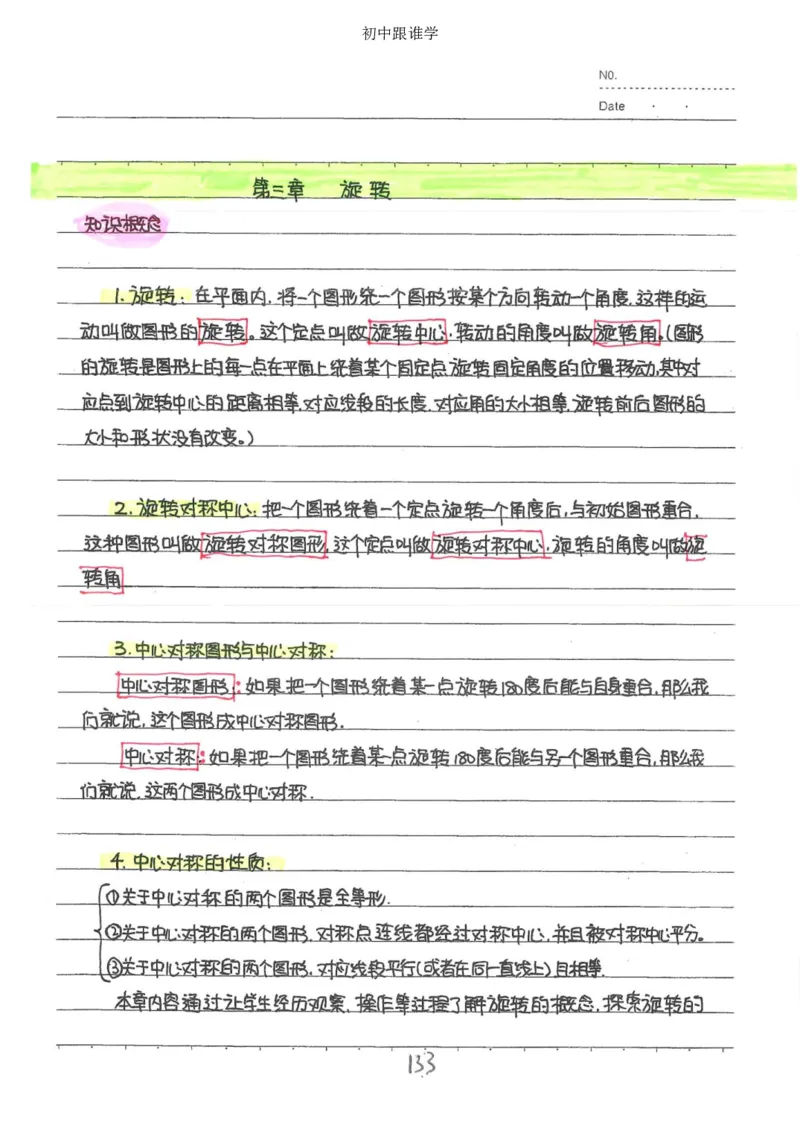 初中跟谁学
NO.
Date
第三章 旋转
知识概念
1. 旋转：在平面内，将一个图形绕一个图形按某个方向转动一个角度，这样的运
动叫做图形的旋转。这个定点叫做旋转中心，转动的角度叫做旋转角。(图形
的旋转是图形上的每一点在平面上绕着某个固定点旋转固定角度的位置移动，其中对
应点到旋转中心的距离相等，对应线段的长度、对应角的大小相等，旋转前后图形的
大小和形状没有改变。)
2. 旋转对称中心：把一个图形绕着一个定点旋转一个角度后，与初始图形重合，
这种图形叫做旋转对称图形，这个定点叫做旋转对称中心，旋转的角度叫做旋
转角
3. 中心对称图形与中心对称：
中心对称图形：如果把一个图形绕着某一点旋转180度后能与自身重合，那么我
们就说，这个图形成中心对称图形.
中心对称：如果把一个图形绕着某一点旋转180度后能与另一个图形重合，那么我
们就说，这两个图形成中心对称.
4. 中心对称的性质：
①关于中心对称的两个图形是全等形.
②关于中心对称的两个图形，对称点连线都经过对称中心，并且被对称中心平分。
③关于中心对称的两个图形，对应线段平行(或者在同一直线上)且相等.
本章内容通过让学生经历观察、操作等过程了解旋转的概念，探索旋转的
133